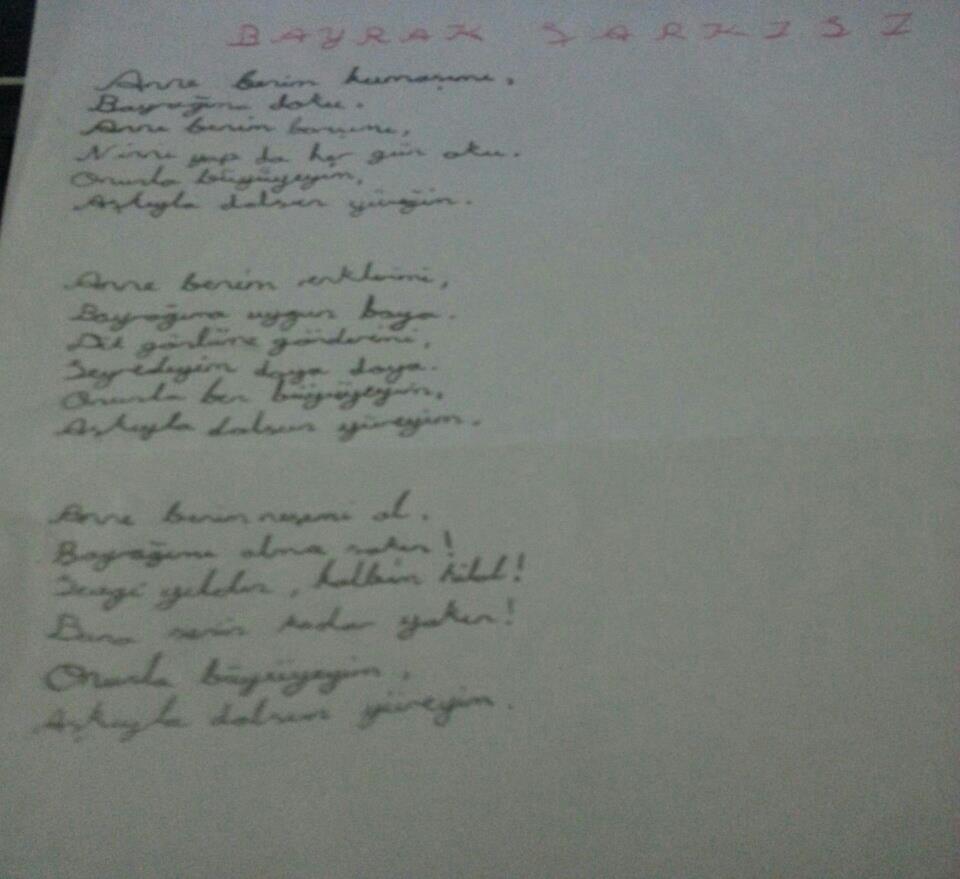 BAYRAK ŞARKISI
Anne benim kumaşımı,
Bayrağına doku.
Anne benim marşımı,
Ninni yap da her gün oku.
Onunla büyüyeyim,
Aşkıyla dolsun yüreğim.
Anne benim renklerimi,
Bayrağıma uygun boya.
Dik gönlüne gönderimi,
Seyredeyim doya doya.
Onunla ben büyüyeyim,
Aşkıyla dolsun yüreyim.
Anne benim neşemi al.
Bayrağımı alma sakın!
Sevgi yıldız, kalbin hilal!
Bana senin kadar yakın!
Onunla büyüyeyim,
Aşkıyla dolsun yüreyim.